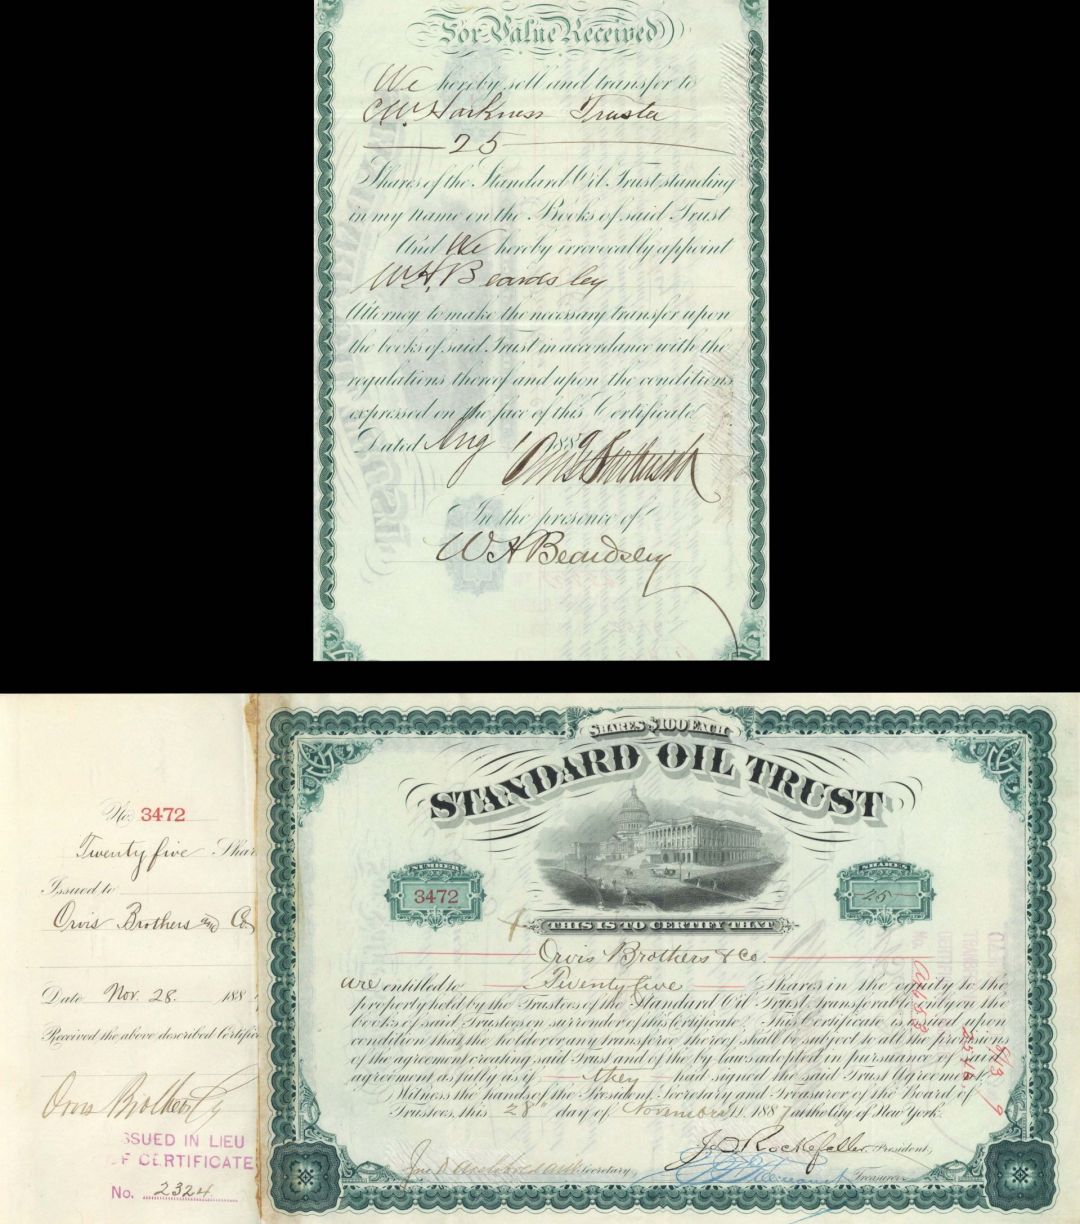 For Value Received
We hereby sell and transfer to
C.W. Harkness Trustee
25
Shares of the Standard Oil Trust standing
in my name on the Books of said Trust
And We hereby irrevocably appoint
W.H. Beardsley
Attorney to make the necessary transfer upon
the books of said Trust in accordance with the
regulations thereof and upon the conditions
expressed on the face of this Certificate
Dated Aug 1 1889
Orvis Brothers & Co
In the presence of
W H Beardsley
No. 3472
Twenty five Shar
Issued to
Orvis Brothers and Co
Date Nov. 28. 188
Received the above described Certific
Orvis Brothers & Co
ISSUED IN LIEU
OF CERTIFICATE
No. 2324
SHARES $100 EACH
STANDARD OIL TRUST
NUMBER
3472
SHARES
25
THIS IS TO CERTIFY THAT
Orvis Brothers & Co.
are entitled to Twenty five Shares in the equity to the
property held by the Trustees of the Standard Oil Trust, transferable only on the
books of said Trustees on surrender of this Certificate. This Certificate is issued upon
condition that the holder or any transferee thereof shall be subject to all the provisions
of the agreement creating said Trust and of the by-laws adopted in pursuance of said
agreement as fully as if they had signed the said Trust Agreement.
Witness the hands of the President, Secretary and Treasurer of the Board of
Trustees, this 28th day of November A.D. 1887 at the City of New York.
Jno. D. Archbold Secretary,
J.D. Rockefeller President,
Treasurer